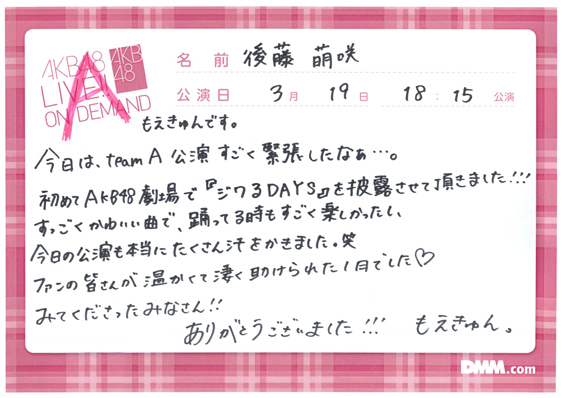 AKB48
LIVE!!
ON DEMAND
A
AKB
48
名前 後藤 萌咲
公演日 3月 19日 18:15 公演
もえきゅんです。
今日は、team A 公演 すごく 緊張したなぁ…。
初めて AKB48 劇場で『ジワるDAYS』を披露させて頂きました!!!
すっごくかわいい曲で、踊ってる時もすごく楽しかったし、
今日の公演も本当にたくさん汗をかきました。笑
ファンの皆さんが温かくて凄く助けられた1日でした♡
みてくださったみなさん!!
ありがとうございました!!! もえきゅん。
DMM.com